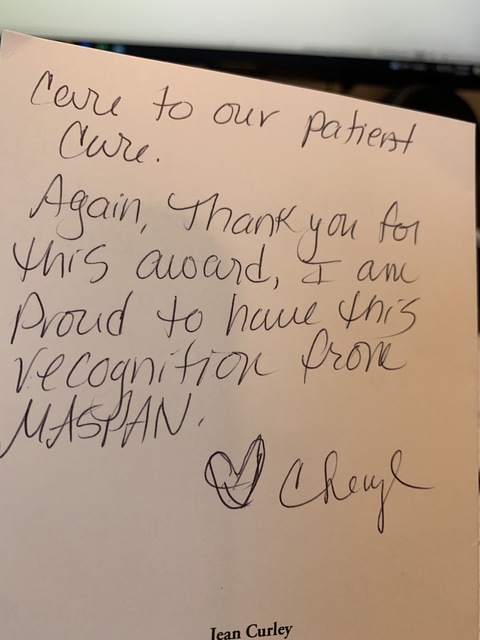 Care to our patient
Care.
Again, Thank you for
this award, I am
Proud to have this
recognition from
MASPAN.
Cheryl
Jean Curley